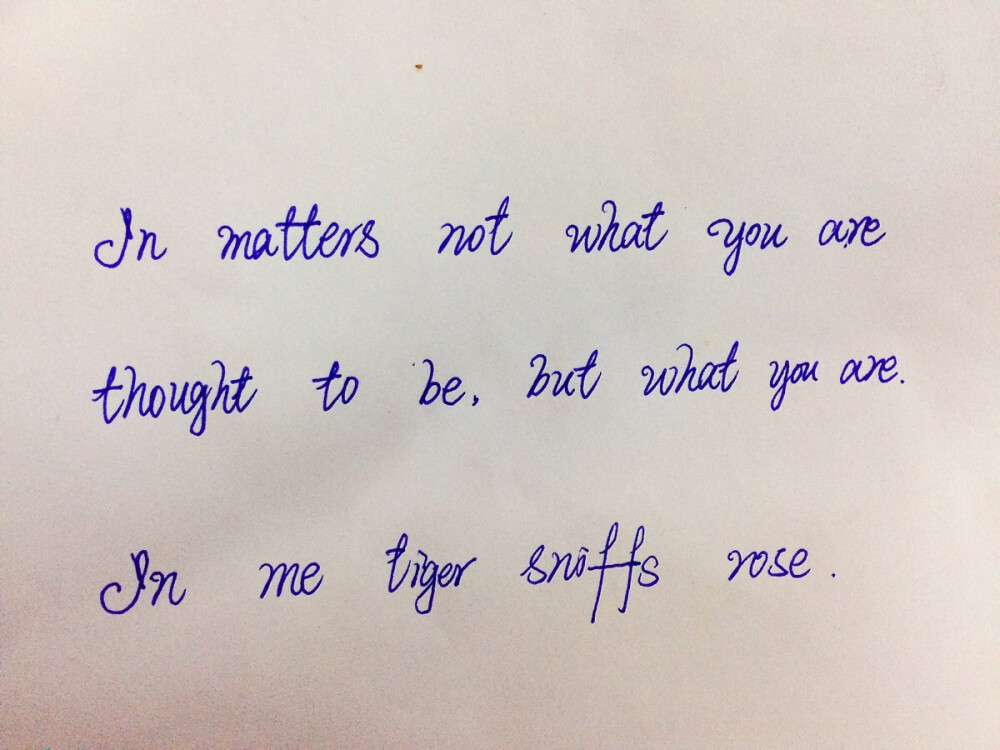 In matters not what you are
thought to be, but what you are.
In me tiger sniffs rose.